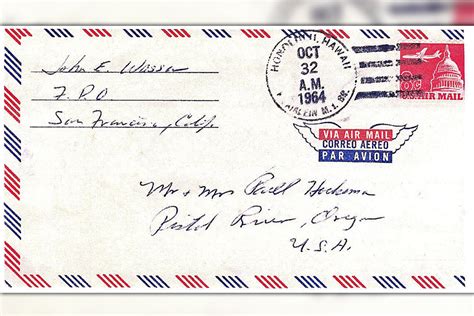 John E. Wasson
F.P.O
San Francisco, Calif.
HONOLULU, HAWAII
OCT
32
A.M.
1964
M.I. BR.
8¢
US AIR MAIL
VIA AIR MAIL
CORREO AEREO
PAR AVION
Mr & Mrs
Pistol River, Oregon
U.S.A.